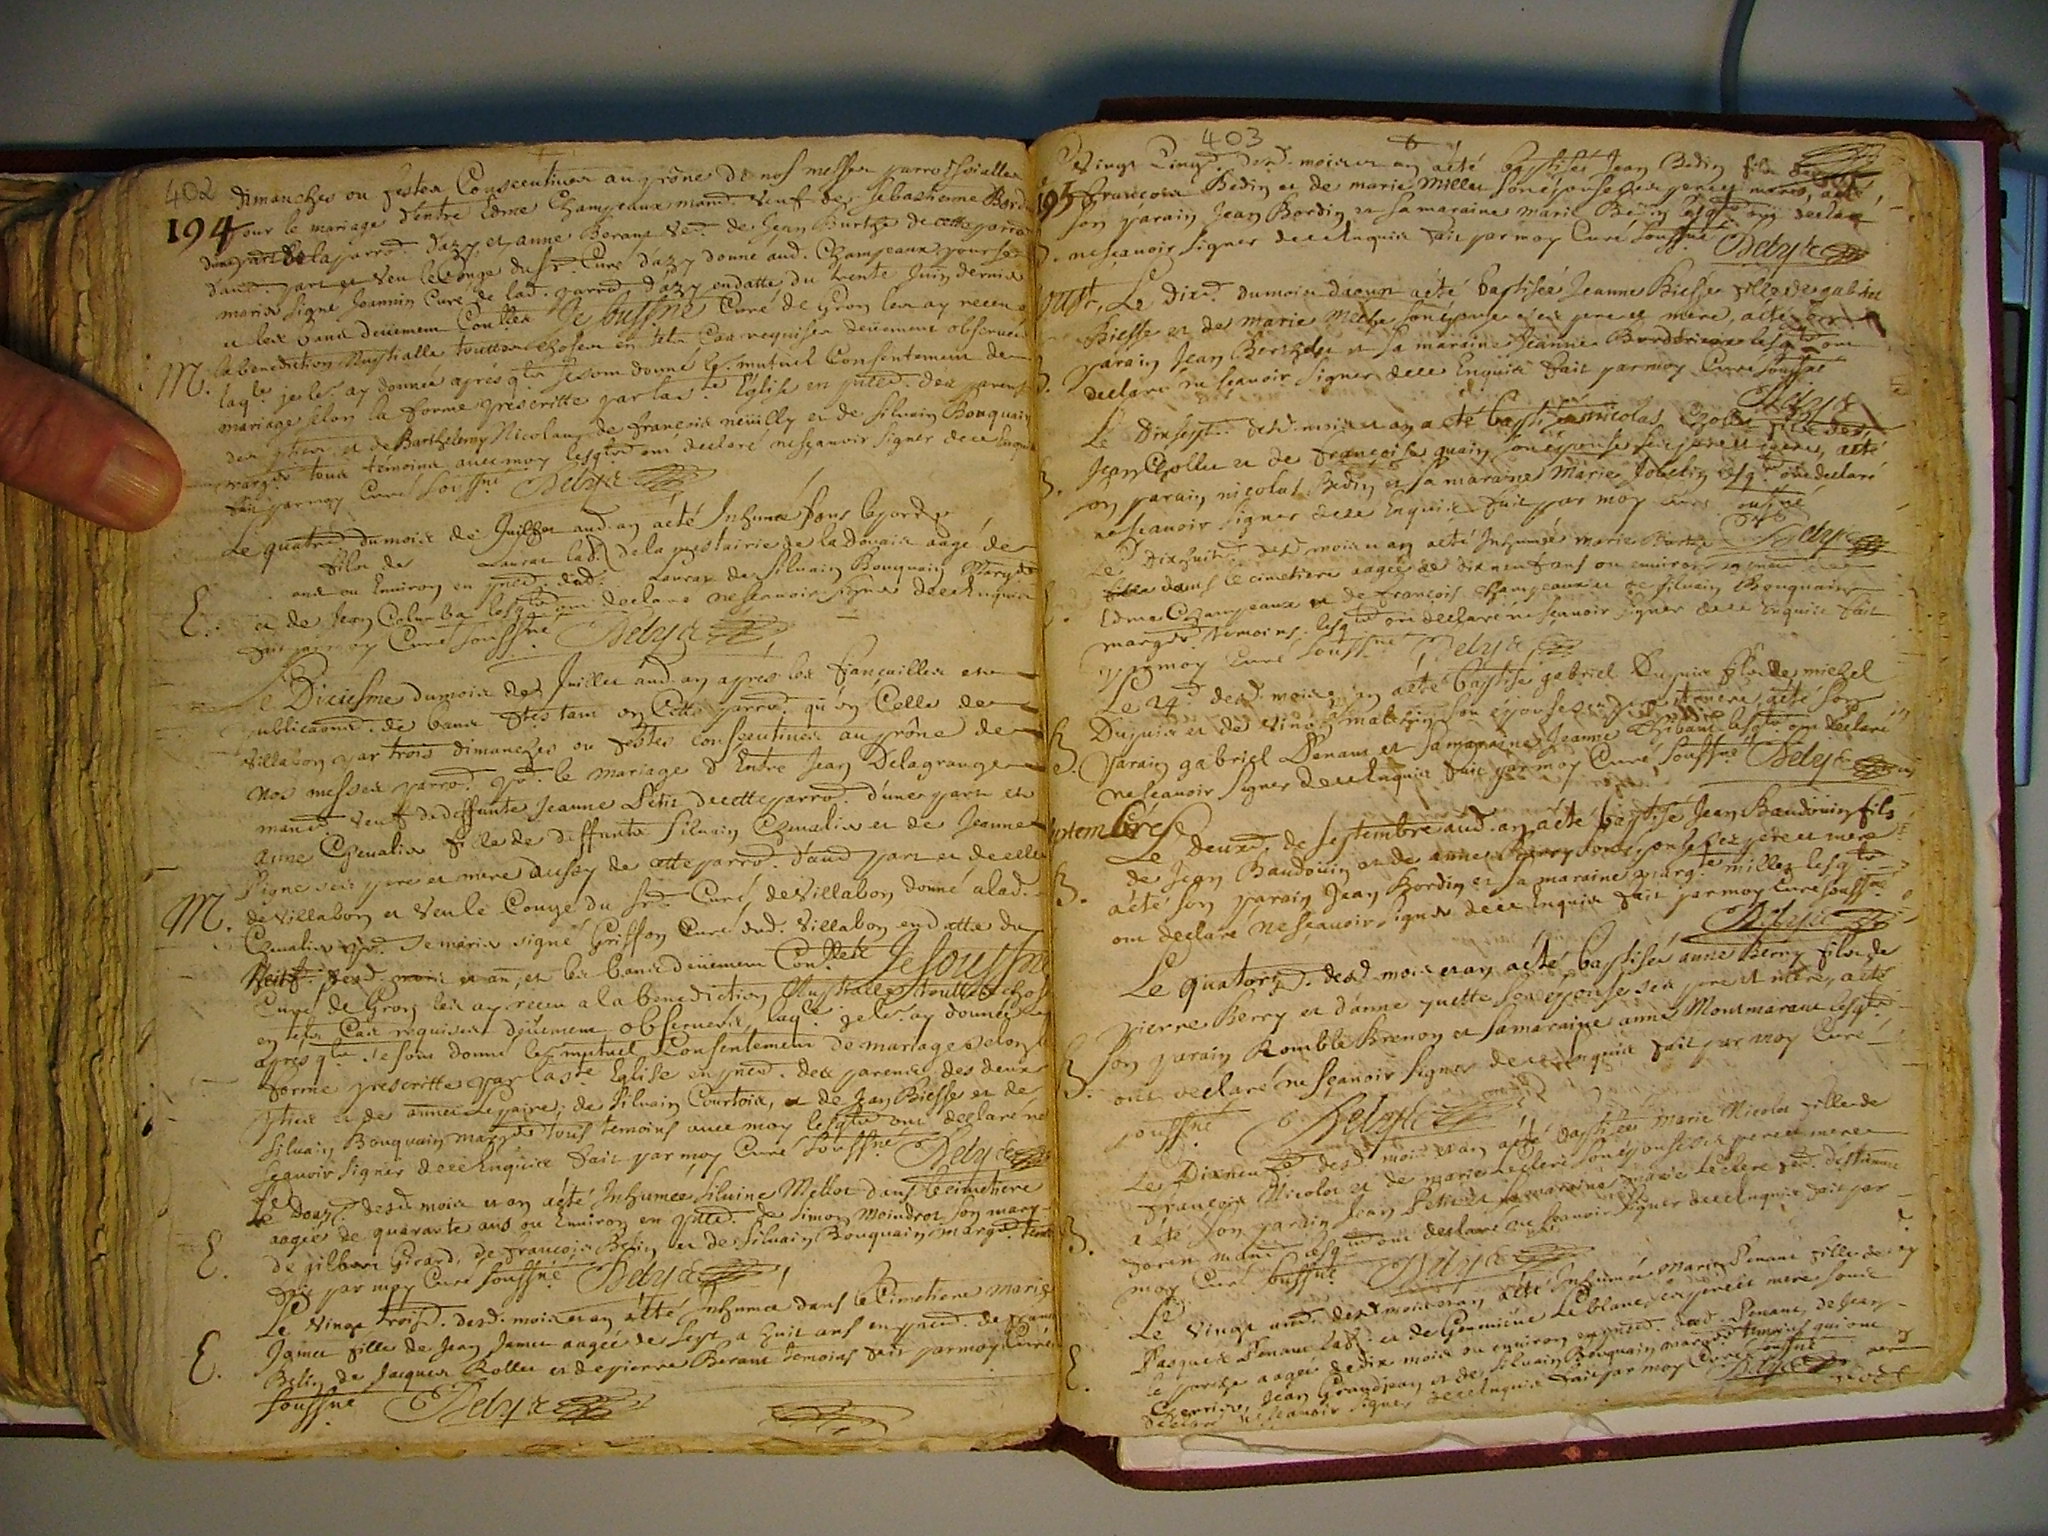 402
194
dimanches ou festes Consecutives au prône de nos messes parroissialles
pour le mariage d'entre Edme Champeaux mand. veuf de Sebastienne Bord
d'une part de la parrod. d'azy, et anne Beraut veu. de Jean Burthe de cette parro
d'aud. part et veu le Conge du sr. Curé d'azy donné aud. Champeaux pour se
marier signé Joannin Curé de lad. parrod. d'azy en datte du trente Juin dernier
et les bans deüement Con Je soussné Curé de Gron les ay receu a
M. la benediction Nuptialle touttes choses en tels Cas requises deüement observées
laqle je les ay donnée après qls se sont donné le mutuel Consentement de
mariage selon la forme prescritte par la ste Eglise en pnced. des parents
des pties et de Barthelemy Nicolau, de Francois neüilly et de Silvain Bouquain
margrs tous témoins avec moy lesqls ont declaré ne sçavoir signer de ce Enquis
fait par moy Curé soussné Debyze
Le quatred. du mois de Juillet aud. an a été Inhumé sous le porche
filse de Laurat lab. de la mestairie de la Douaix aagé de
E. ans ou Environ en pnced. dud. Laurat de Silvain Bouquain Margrs
et de Jean Columba lesqls ont declaré ne sçavoir signer de ce Enquis
fait par moy Curé soussné Debyze
Le Dixiesme du mois de Juillet aud. an apres les fiançailles et
publicaons de bans ftes tant en Cette parrod. qu'en Celle de
Villabon par trois dimanches ou festes consecutives au prône de
nos messes parrod. pd. le mariage d'Entre Jean Delagrange
mand. veuf de deffunte Jeanne Petit de cette parrod. d'une part et
anne Chevalier fille de deffunts Silvain Chevalier et de Jeanne
Pigne ses pere et mere aussy de cette parrod. d'aud. part et de celle
M. de Villabon et veu le Congé du Srd. Curé de Villabon donné a lad.
Chevalier pd. se marier signé Griffon Curé dud. Villabon en datte du
huitd. desd. mois et an, et les bans deüement Je soussn
Curé de Gron les ay receu a la benediction Nuptialle touttes chose
en tels Cas requises deüement observées, laqle je les ay donnée
apres qls se sont donné le mutuel Consentement de mariage selon l
forme prescritte par la ste Eglise en pnced. des parents des deux
pties et de anne Lepaire, de Silvain Courtois, et de Jean Biesse et de
Silvain Bouquain margrs tous temoins avec moy lesqls ont declaré ne
scavoir signer de ce Enquis fait par moy Curé soussné Debyze
Le douzd. desd. mois et an a été Inhumée Silvine Mellot dans le cimetiere
aagée de quarante ans ou Environ en pnced. de Simon Moindrot son mary
E. de gilbert Girard, de francois Bedin et de Silvain Bouquain margd. temo
fait par moy Curé soussné Debyze
Le vingt troisd. desd. mois et an a été Inhumée dans le Cimetiere Marie
Jamet fille de Jean Jamet aagée de sept a huit ans en pnced. de francois
E. Belin de Jacques Rollet et de pierre Beraut temoins fait par moy Curé
soussné Debyze
403
195
Le Vingt Cinqd. desd. mois et an a été baptisé Jean Bedin fils de
francois Bedin et de marie Millet son épouse ses pere et mere, a été
son parain Jean Bordin et sa maraine marie Bedin lesqls ont declaré
B. ne sçavoir signer de ce Enquis fait par moy Curé soussné Debyze
oust, Le dixd. du mois daoust a été baptisée Jeanne Biesse fille de gabriel
Biesse et de marie son épouse ses pere et mere, a été son
parain Jean Berthelet et sa maraine Jeanne lesqls ont
B. declaré ne sçavoir signer de ce Enquis fait par moy Curé soussné
Debyze
Le Dix septd. desd. mois et an a été baptisé nicolas Chollet fils de
Jean Chollet et de françoise quain son épouse ses pere et mere, a été
B. son parain nicolas Bedin et sa maraine Marie lesqls ont declaré
ne sçavoir signer de ce Enquis fait par moy Curé soussné
Debyze
Le Dix huitd. desd. mois et an a été Inhumée marie
fille dans le cimetiere aagée de dix neuf ans ou environ en pnced. de
E. Edme Champeaux et de françois Champeaux et de Silvain Bouquain
margrs temoins, lesqls ont declaré ne sçavoir signer de ce Enquis fait
par moy Curé soussné Debyze
Le 24d. desd. mois et an a été baptisé gabriel Dupuis fils de michel
Dupuis et de son épouse ses pere et mere, a été son
B. parain gabriel Penaut et sa maraine Jeanne Thibaut lesqls ont declaré
ne scavoir signer de ce Enquis fait par moy Curé soussné Debyze
ptembre Le deuxd. de septembre aud. an a été baptisé Jean Baudouin fils
de Jean Baudouin et de anne Berry son épouse ses pere et mere
B. a été son parain Jean Bordin et sa maraine margte millet lesqls
ont declaré ne sçavoir signer de ce Enquis fait par moy Curé soussné
Debyze
Le quatorzd. desd. mois et an a été baptisée anne Berry fille de
pierre Berry et d'anne quette son épouse ses pere et mere, a été
B. son parain Romble Brenon et sa maraine anne Montmarault lesqls
ont declaré ne sçavoir signer de ce Enquis fait par moy Curé
soussné Debyze
Le Dixneufe desd. mois et an a été baptisée Marie Nicolot fille de
francois Nicolot et de marie Leclerc son épouse ses pere et mere
B. a été son parain Jean Petit et sa maraine marie Leclerc
mand. lesqls ont declaré ne sçavoir signer de ce Enquis fait par
moy Curé soussné Debyze
Le Vingt desd. mois et an a été Inhumée Marie Penaut fille de
Pasquet Penaut lab. et de Genevieve Leblanc ses pere et mere sous
E. le porche aagée de dix mois ou environ en pnced. dud. Penaut, de Jean
Cherrier, Jean Grandjean et de Silvain Bouquain margrs temoins qui ont
declaré ne sçavoir signer de ce Enquis fait par moy Curé soussné
Debyze